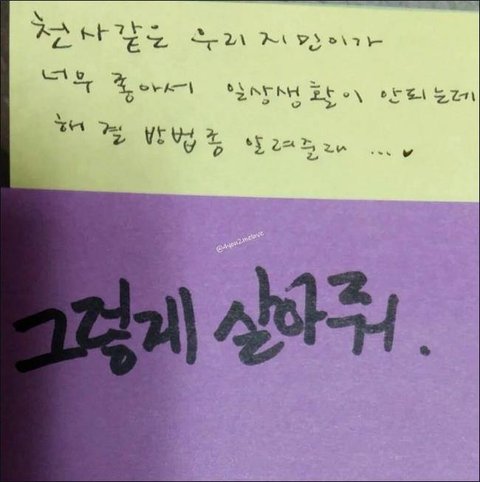 천사같은 우리 지민이가
너무 좋아서 일상생활이 안되는데
해결 방법좀 알려줄래 ...♥
@4you2melove
그렇게 살아줘.